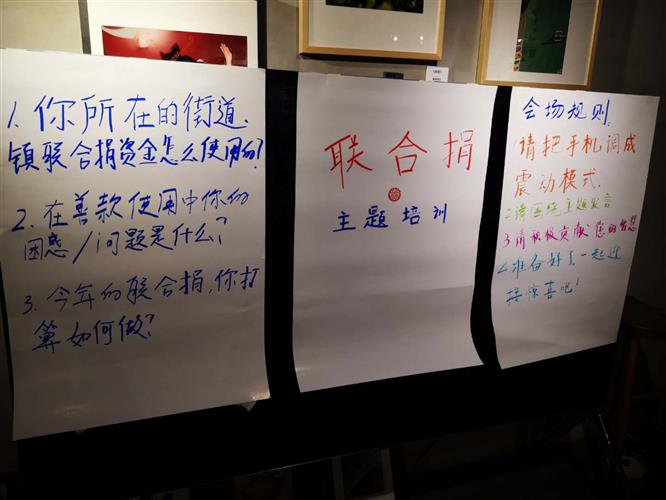 1. 你所在的街道、
镇联合捐资金怎么使用的?
2. 在善款使用中你的
困惑/问题是什么?
3. 今年的联合捐,你打
算如何做?
联合捐
主题培训
会场规则
请把手机调成
震动模式.
2.请围绕主题发言
3.请积极贡献您的智慧
4.准备好了一起迎
接惊喜吧!